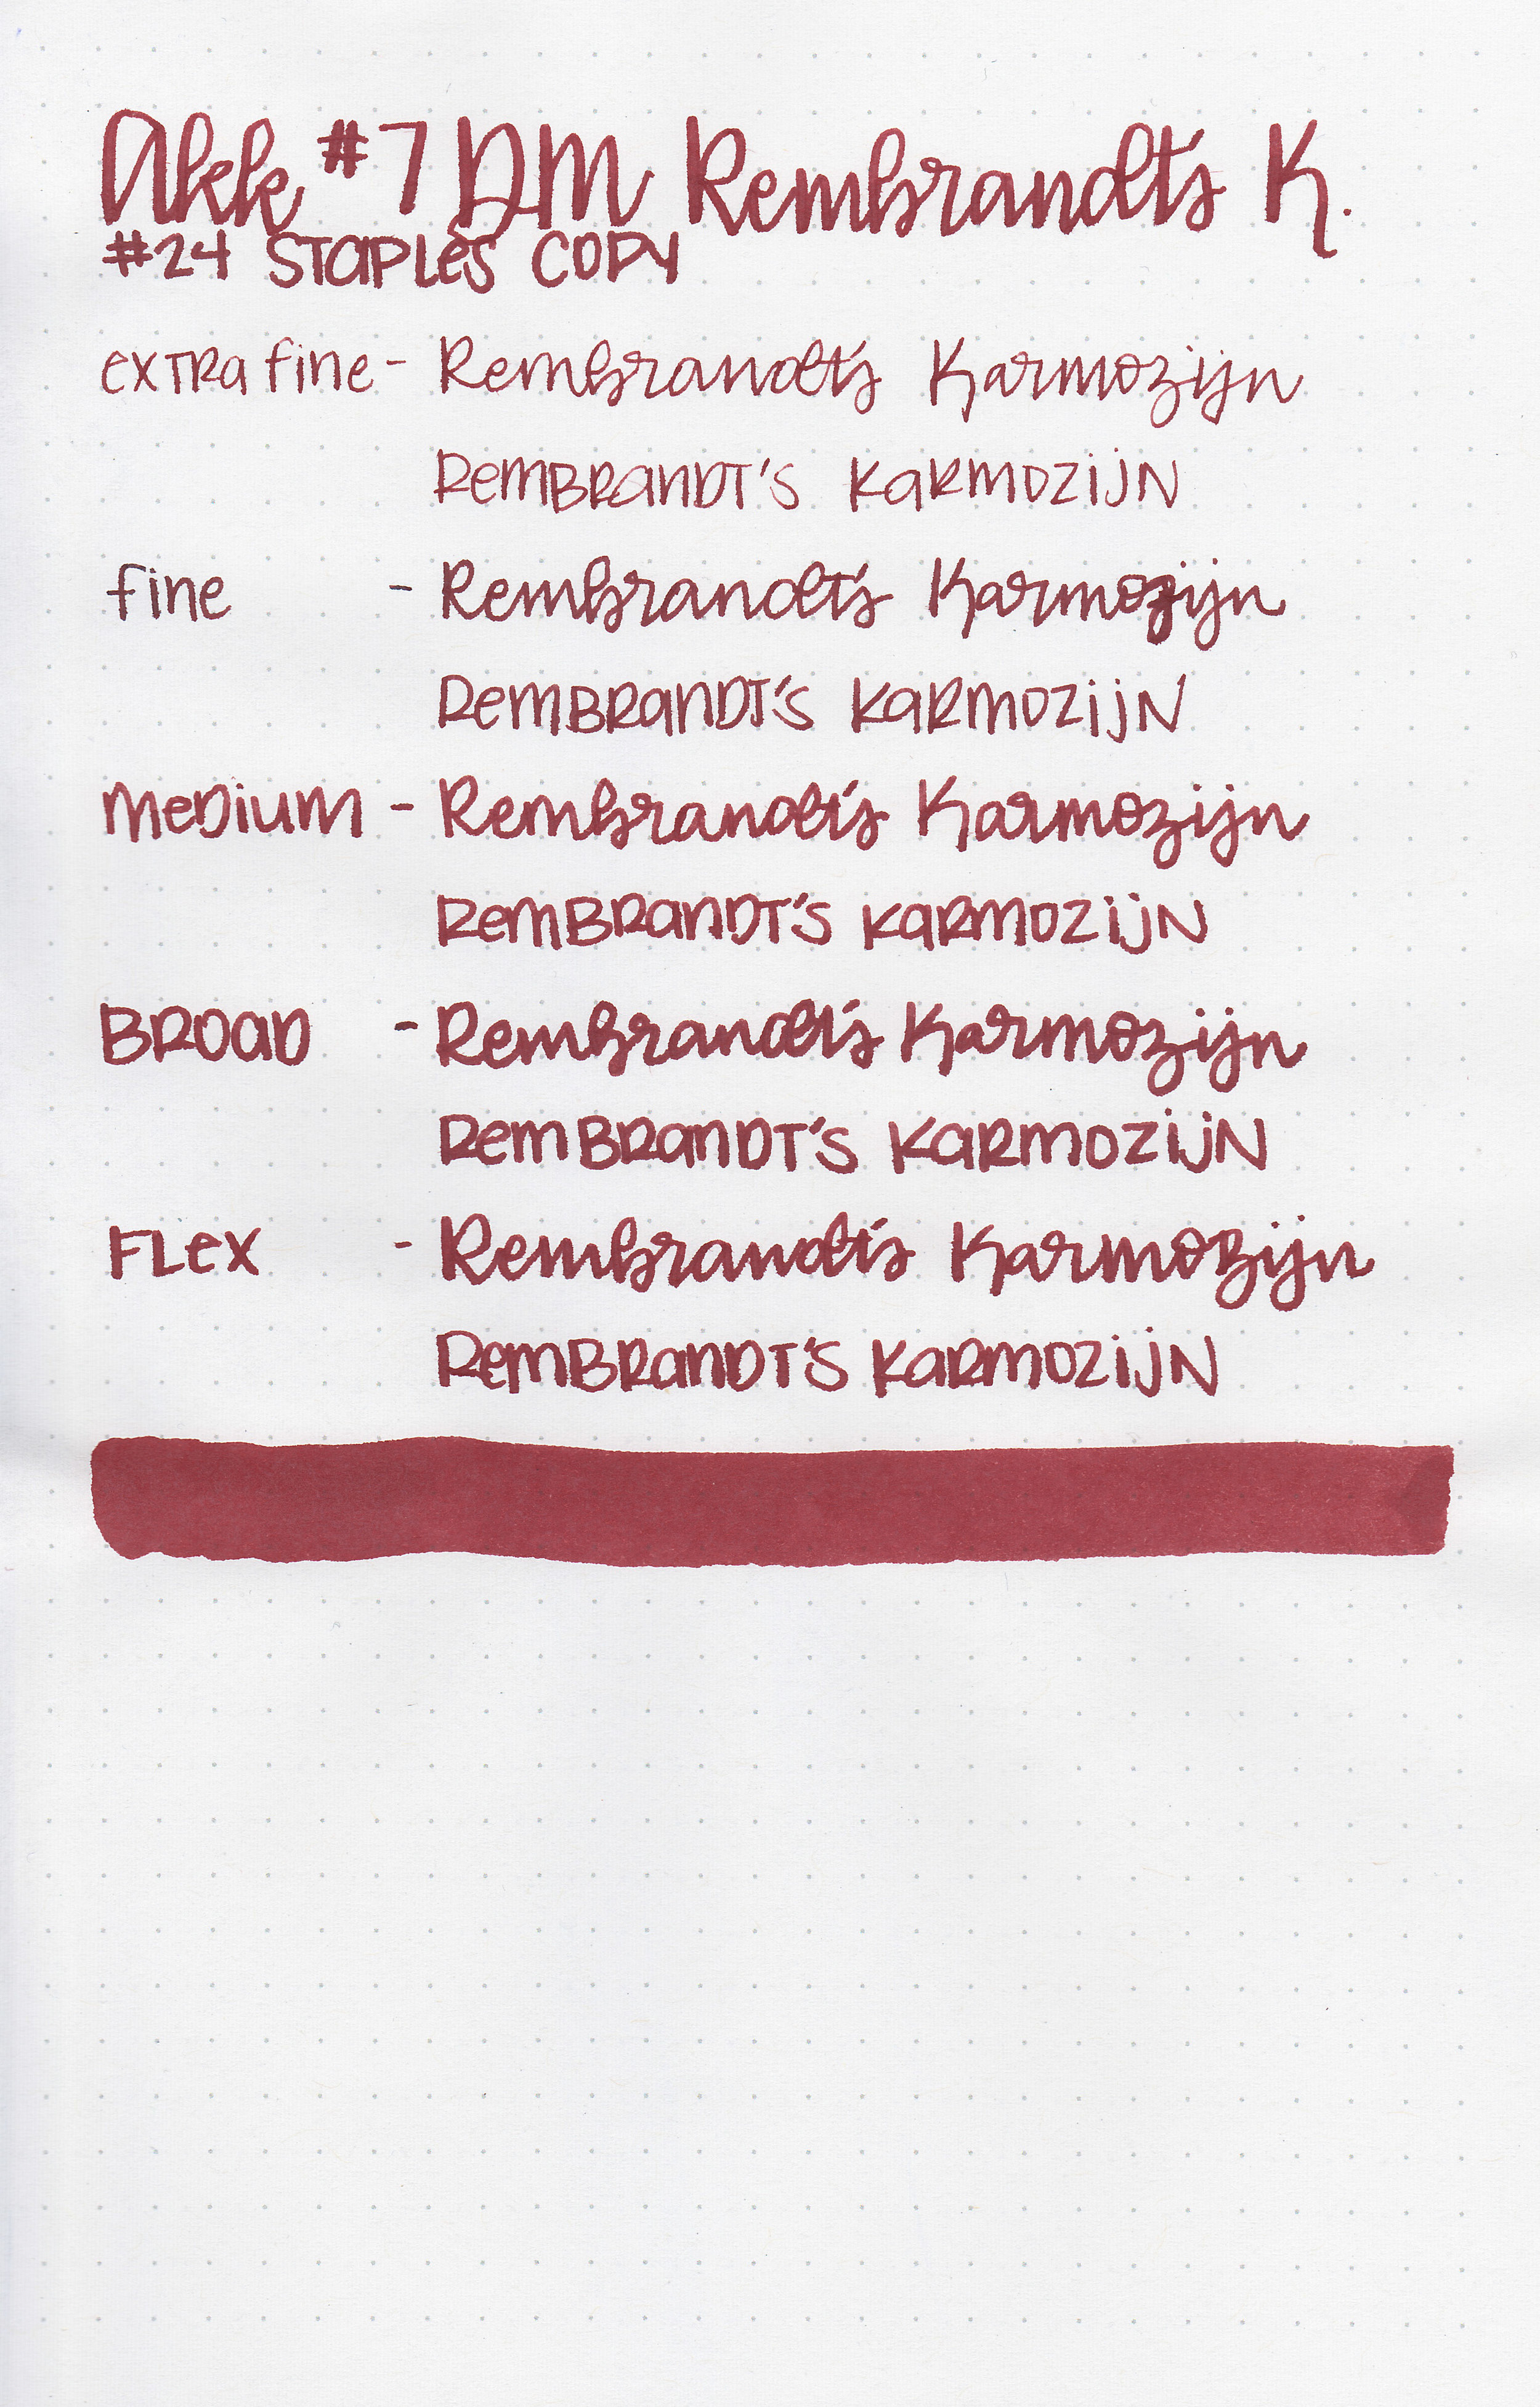 Akk #7 DM Rembrandt's K.
#24 STAPLES COPY
EXTRA fine - Rembrandt's Karmozijn
REMBRANDT'S KARMOZIJN
fine - Rembrandt's Karmozijn
REMBRANDT'S KARMOZIJN
MEDIUM - Rembrandt's Karmozijn
REMBRANDT'S KARMOZIJN
BROAD - Rembrandt's Karmozijn
REMBRANDT'S KARMOZIJN
FLEX - Rembrandt's Karmozijn
REMBRANDT'S KARMOZIJN